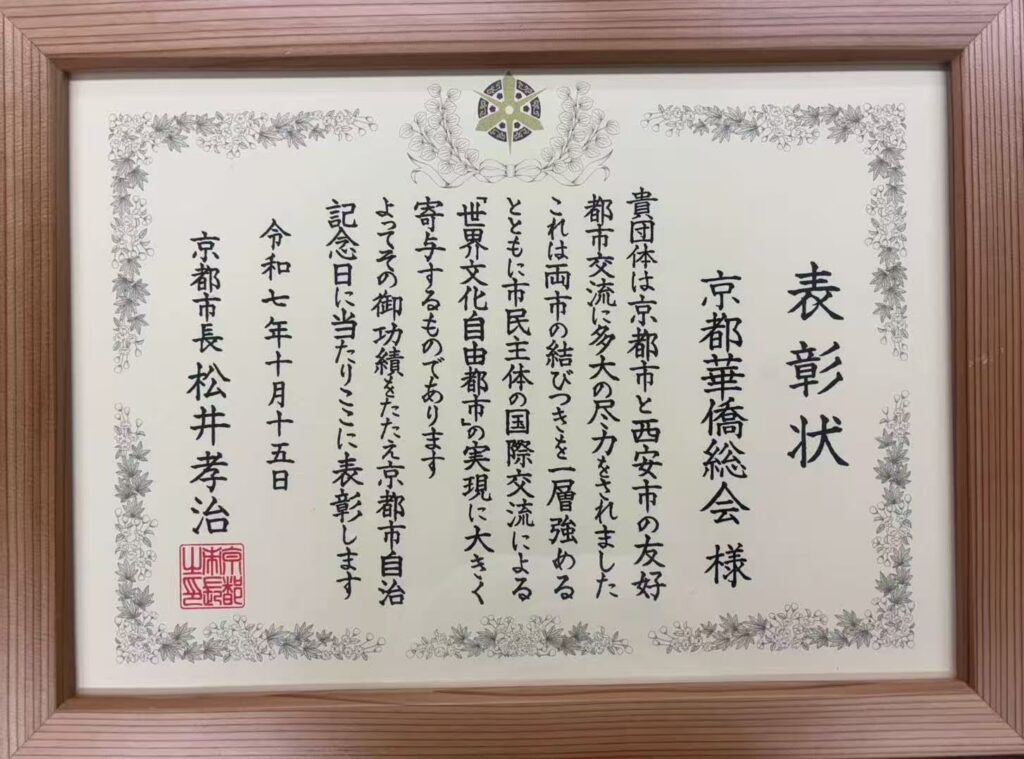 表彰状
京都華僑総会 様
貴団体は京都市と西安市の友好
都市交流に多大の尽力をされました
これは両市の結びつきを一層強める
とともに市民主体の国際交流による
「世界文化自由都市」の実現に大きく
寄与するものであります
よってその御功績をたたえ京都市自治
記念日に当たりここに表彰します
令和七年十月十五日
京都市長 松井孝治
京都市長之印